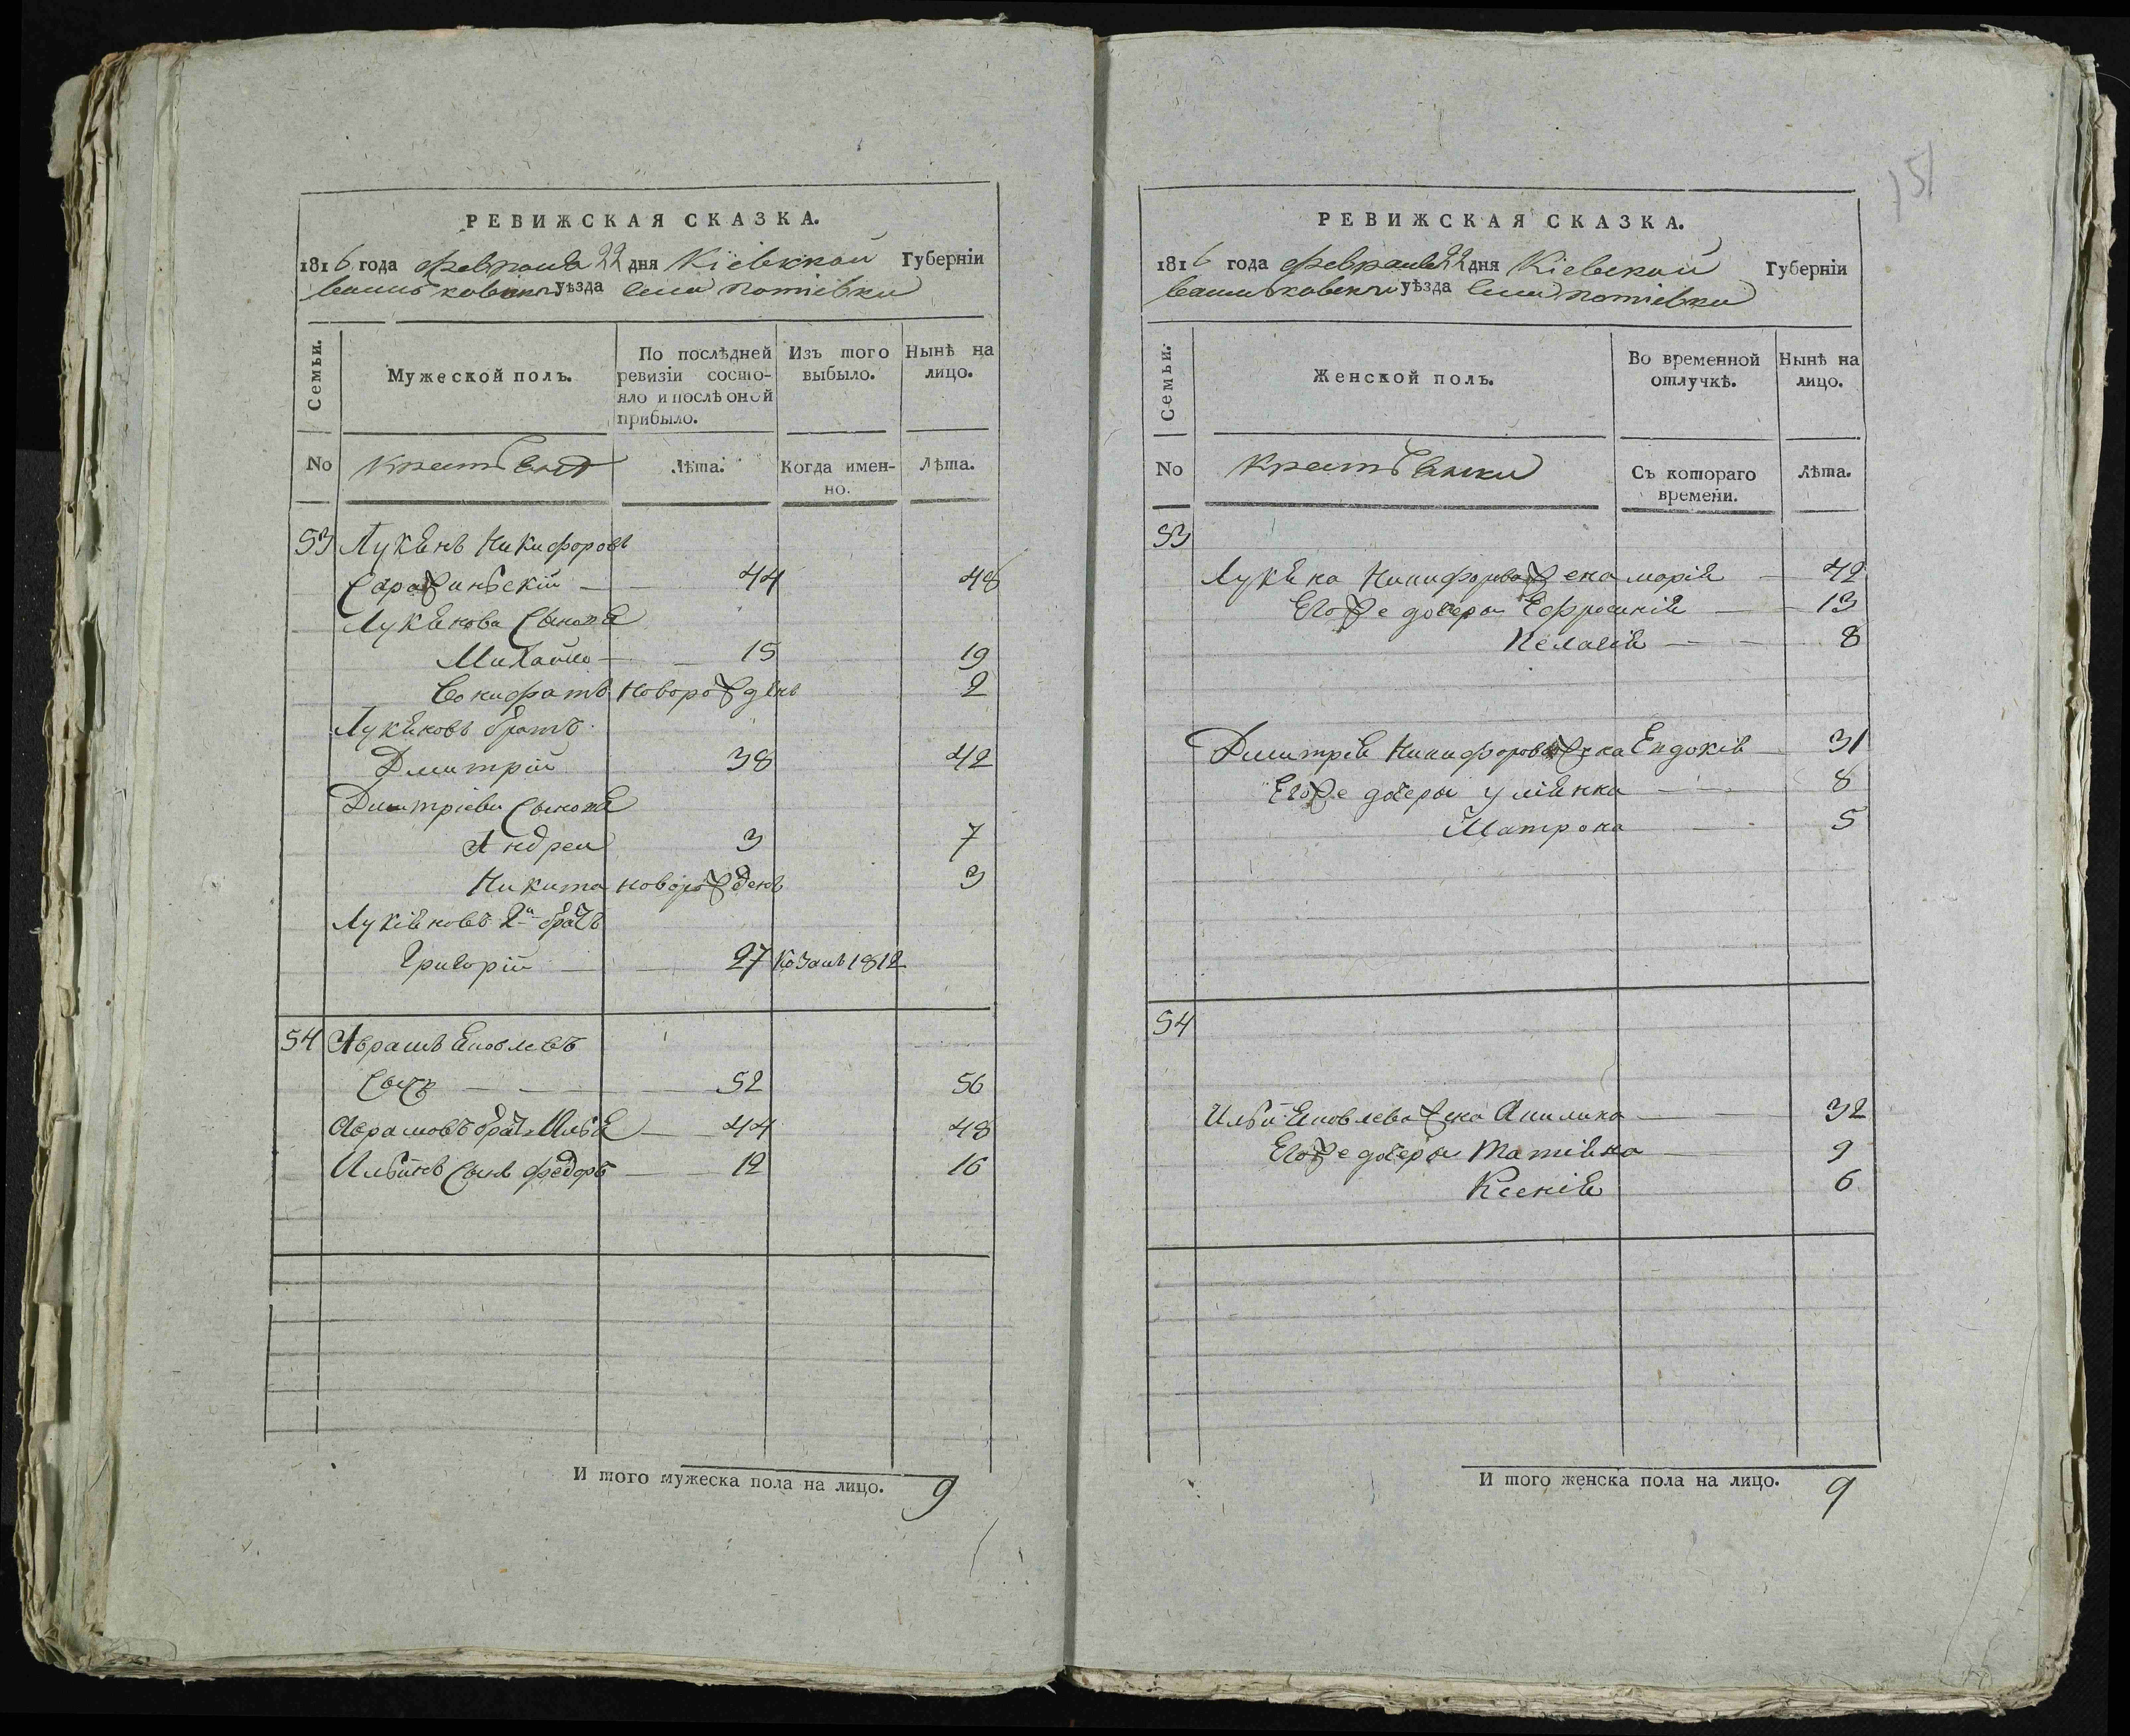 РЕВИЖСКАЯ СКАЗКА.
1816 года февраля 22 дня Кіевской Губерніи
Васильковскаго уѣзда села Потіевки
Семьи.
Мужеской полъ.
По послѣдней ревизіи состо-
яло и послѣ оной
прибыло.
Изъ того
выбыло.
Нынѣ на
лицо.
No
Крестьяня
Лѣта.
Когда имен-
но.
Лѣта.
53 Лукянъ Никифоровъ
44 48
Лукянова сыновя
Михайло 15 19
Вонифатъ новорожденъ 2
Лукяновъ братъ
Дмитрій 38 42
Дмитріеви сыновя
Андрей 3 7
Никита новорожденъ 3
Лукіяновъ 2й братъ
Григорій 27 1812
54 Аврамъ Яковлевъ
Сычъ 52 56
Аврамовъ братъ Илья 44 48
Ильинъ сынъ федоръ 12 16
И того мужеска пола на лицо. 9
151
РЕВИЖСКАЯ СКАЗКА.
1816 года февраля 22 дня Кіевской Губерніи
Васильковскаго уѣзда села Потіевки
Семьи.
Женской полъ.
Во временной
отлучкѣ.
Нынѣ на
лицо.
No
Крестьянки
Съ котораго
времени.
Лѣта.
53
Лукяна Никифорова жена марія 42
Егоже дочери Ефросинія 13
Пелагія 8
Дмитрія Никифорова жена Евдокія 31
Егоже дочери уліянна 8
Матрона 5
54
Ильи Яковлева жена Акилина 32
Егоже дочери Татіяна 9
Ксенія 6
И того женска пола на лицо. 9